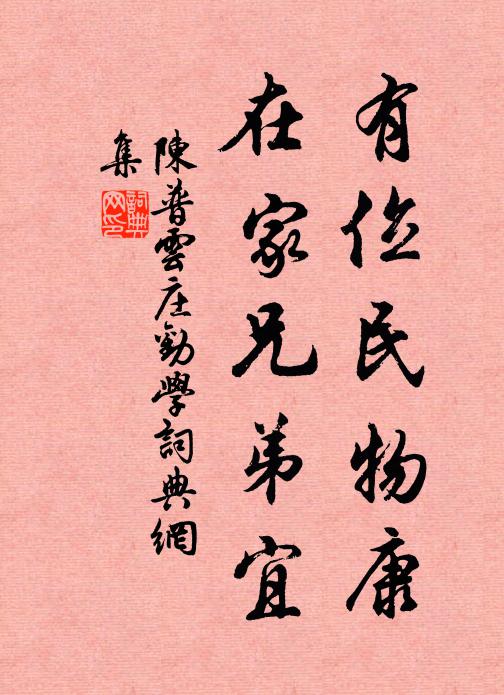 有位民物康
在家兄弟宜
陳普雲庄勸學詞典網
集
詞典
网印